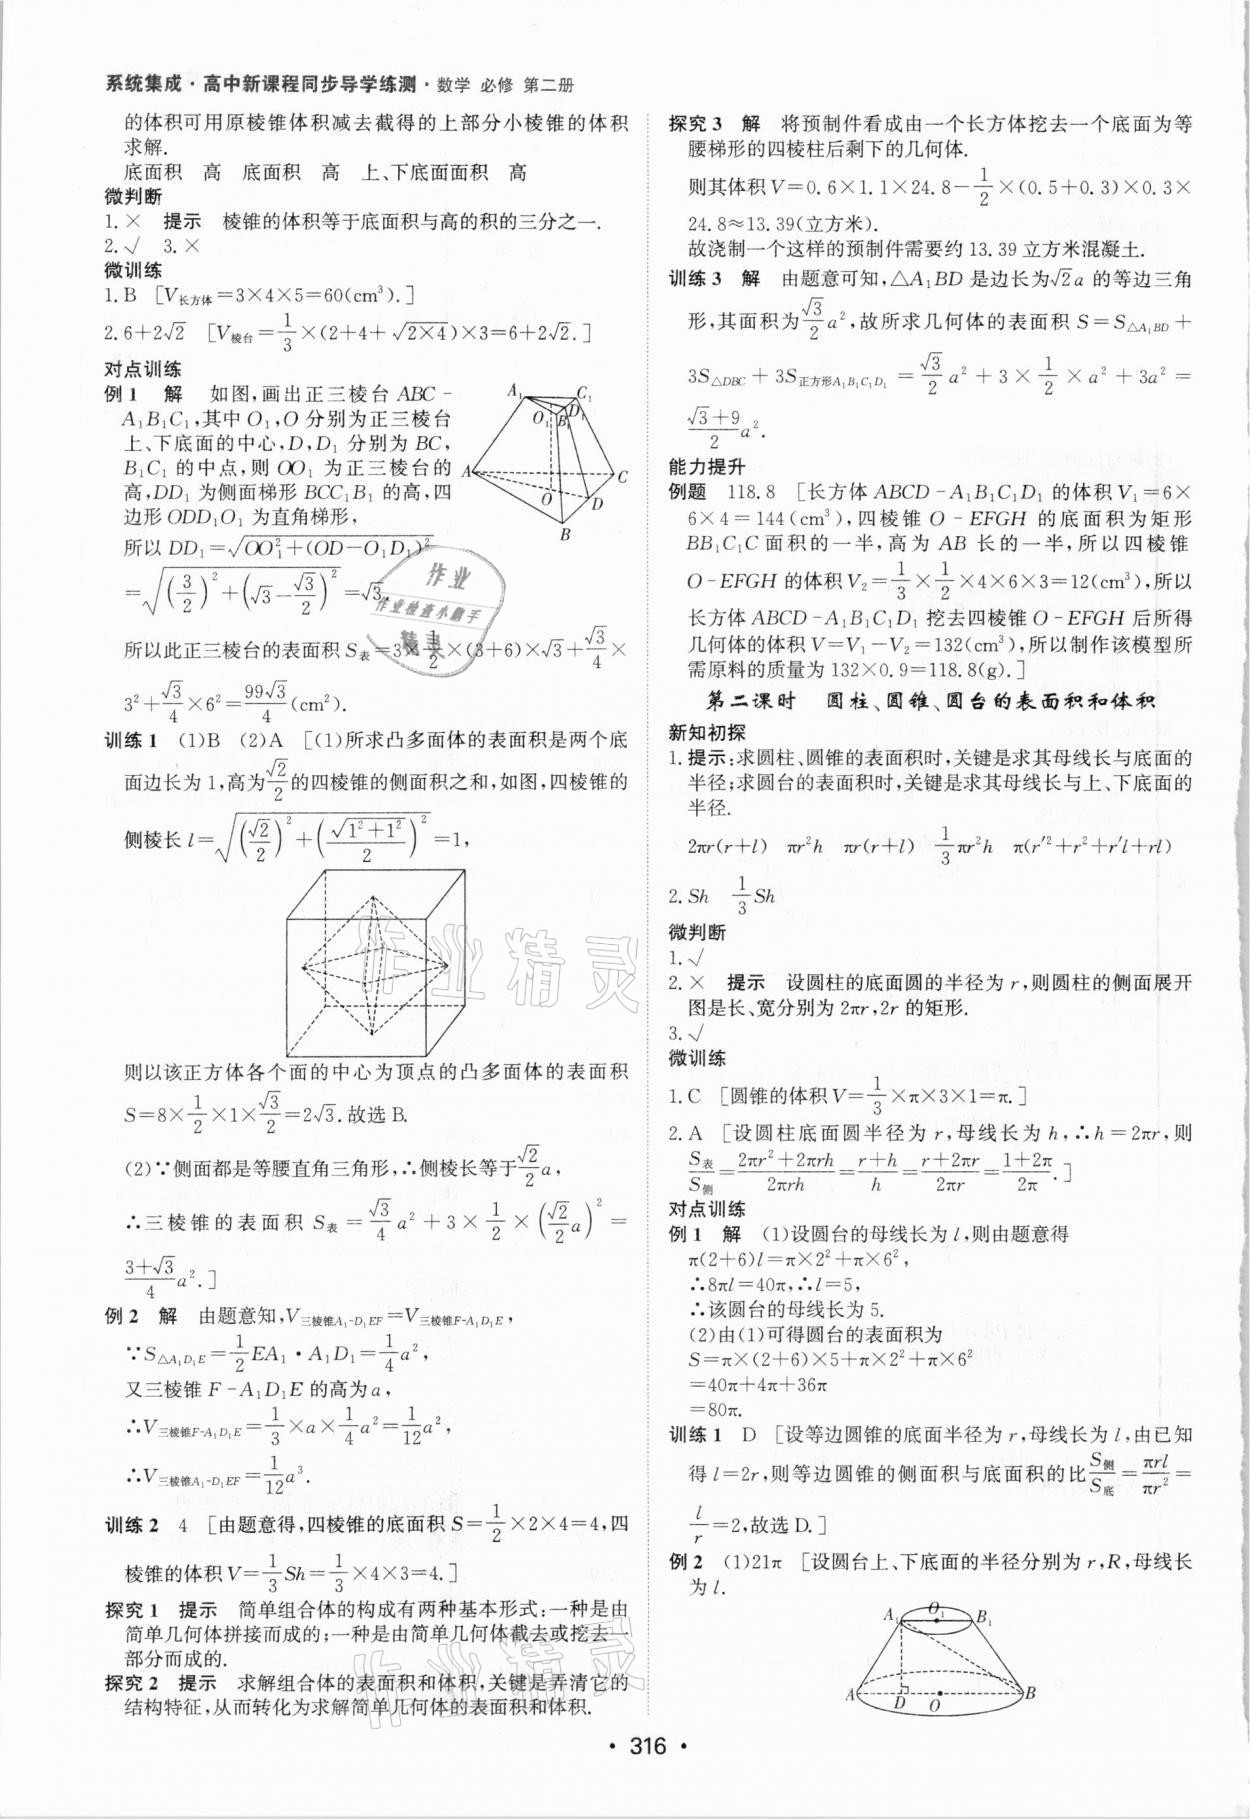 系统集成·高中新课程同步导学练测·数学 必修 第二册
的体积可用原棱锥体积减去截得的上部分小棱锥的体积
求解.
底面积 高 底面积 高 上、下底面面积 高
微判断
1.× 提示 棱锥的体积等于底面积与高的积的三分之一.
2.√ 3.×
微训练
1.B [V长方体=3×4×5=60(cm³).]
2.6+2√2 [V棱台=1/3×(2+4+√(2×4))×3=6+2√2.]
对点训练
例1 解 如图,画出正三棱台ABC-
A₁B₁C₁,其中O₁,O分别为正三棱台
上、下底面的中心,D,D₁分别为BC,
B₁C₁的中点,则OO₁为正三棱台的
高,DD₁为侧面梯形BCC₁B₁的高,四
边形ODD₁O₁为直角梯形,
A₁ C₁ O₁ D₁ B₁ A C O D B
所以DD₁=√(OO₁²+(OD-O₁D₁)²)
=√((3/2)²+(√3-√3/2)²)=√3,
所以此正三棱台的表面积S表=3×1/2×(3+6)×√3+√3/4×
3²+√3/4×6²=99√3/4(cm²).
训练1 (1)B (2)A [(1)所求凸多面体的表面积是两个底
面边长为1,高为√2/2的四棱锥的侧面积之和,如图,四棱锥的
侧棱长l=√((√2/2)²+(√(1²+1²)/2)²)=1,
则以该正方体各个面的中心为顶点的凸多面体的表面积
S=8×1/2×1×√3/2=2√3.故选B.
(2)∵侧面都是等腰直角三角形,∴侧棱长等于√2/2a,
∴三棱锥的表面积S表=√3/4a²+3×1/2×(√2/2a)²=
(3+√3)/4a².]
例2 解 由题意知,V三棱锥A₁-D₁EF=V三棱锥F-A₁D₁E,
∵S△A₁D₁E=1/2EA₁·A₁D₁=1/4a²,
又三棱锥F-A₁D₁E的高为a,
∴V三棱锥F-A₁D₁E=1/3×a×1/4a²=1/12a²,
∴V三棱锥A₁-D₁EF=1/12a³.
训练2 4 [由题意得,四棱锥的底面积S=1/2×2×4=4,四
棱锥的体积V=1/3Sh=1/3×4×3=4.]
探究1 提示 简单组合体的构成有两种基本形式:一种是由
简单几何体拼接而成的;一种是由简单几何体截去或挖去一
部分而成的.
探究2 提示 求解组合体的表面积和体积,关键是弄清它的
结构特征,从而转化为求解简单几何体的表面积和体积.
探究3 解 将预制件看成由一个长方体挖去一个底面为等
腰梯形的四棱柱后剩下的几何体.
则其体积V=0.6×1.1×24.8-1/2×(0.5+0.3)×0.3×
24.8≈13.39(立方米).
故浇制一个这样的预制件需要约13.39立方米混凝土.
训练3 解 由题意可知,△A₁BD是边长为√2a的等边三角
形,其面积为√3/2a²,故所求几何体的表面积S=S△A₁BD+
3S△DBC+3S正方形A₁B₁C₁D₁=√3/2a²+3×1/2×a²+3a²=
(√3+9)/2a².
能力提升
例题 118.8 [长方体ABCD-A₁B₁C₁D₁的体积V₁=6×
6×4=144(cm³),四棱锥O-EFGH的底面积为矩形
BB₁C₁C面积的一半,高为AB长的一半,所以四棱锥
O-EFGH的体积V₂=1/3×1/2×4×6×3=12(cm³),所以
长方体ABCD-A₁B₁C₁D₁挖去四棱锥O-EFGH后所得
几何体的体积V=V₁-V₂=132(cm³),所以制作该模型所
需原料的质量为132×0.9=118.8(g).]
第二课时 圆柱、圆锥、圆台的表面积和体积
新知初探
1.提示:求圆柱、圆锥的表面积时,关键是求其母线长与底面的
半径;求圆台的表面积时,关键是求其母线长与上、下底面的
半径.
2πr(r+l) πr²h πr(r+l) 1/3πr²h π(r′²+r²+r′l+rl)
2.Sh 1/3Sh
微判断
1.√
2.× 提示 设圆柱的底面圆的半径为r,则圆柱的侧面展开
图是长、宽分别为2πr,2r的矩形.
3.√
微训练
1.C [圆锥的体积V=1/3×π×3×1=π.]
2.A [设圆柱底面圆半径为r,母线长为h,∴h=2πr,则
S表/S侧=(2πr²+2πrh)/2πrh=(r+h)/h=(r+2πr)/2πr=(1+2π)/2π.]
对点训练
例1 解 (1)设圆台的母线长为l,则由题意得
π(2+6)l=π×2²+π×6²,
∴8πl=40π,∴l=5,
∴该圆台的母线长为5.
(2)由(1)可得圆台的表面积为
S=π×(2+6)×5+π×2²+π×6²
=40π+4π+36π
=80π.
训练1 D [设等边圆锥的底面半径为r,母线长为l,由已知
得l=2r,则等边圆锥的侧面积与底面积的比S侧/S底=πrl/πr²=
l/r=2,故选D.]
例2 (1)21π [设圆台上、下底面的半径分别为r,R,母线长
为l.
A₁ O₁ B₁
A D O B
·316·
作业
作业检查小助手
精灵
作业精灵
作业精灵